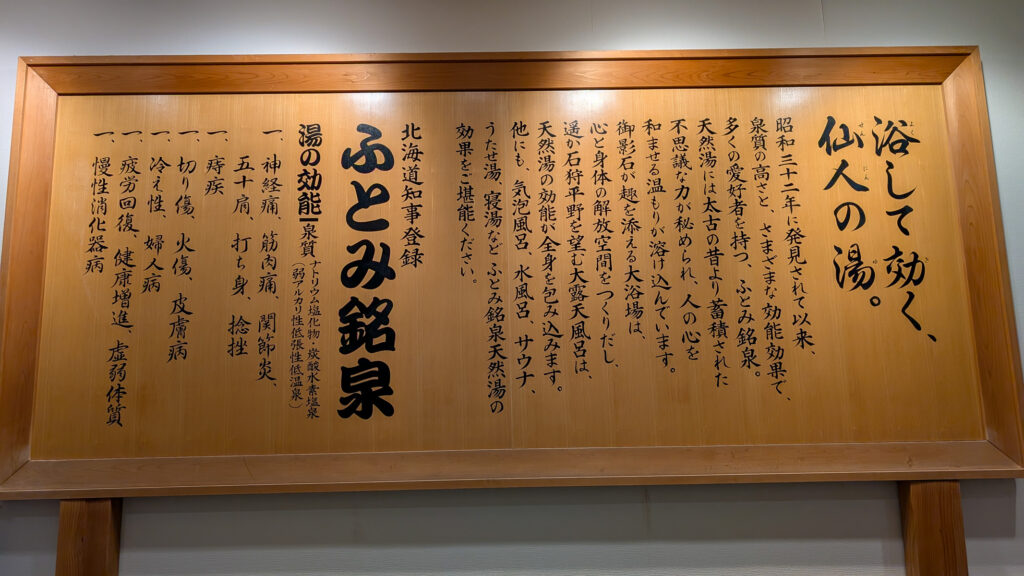 浴して効く、
仙人の湯。
昭和三十二年に発見されて以来、
泉質の高さと、さまざまな効能効果で、
多くの愛好者を持つ、ふとみ銘泉。
天然湯には太古の昔より蓄積された
不思議な力が秘められ、人の心を
和ませる温もりが溶け込んでいます。
御影石が趣を添える大浴場は、
心と身体の解放空間をつくりだし、
遥か石狩平野を望む大露天風呂は、
天然湯の効能が全身を包み込みます。
他にも、気泡風呂、水風呂、サウナ、
うたせ湯、寝湯など ふとみ銘泉天然湯の
効果をご堪能ください。
北海道知事登録
ふとみ銘泉
湯の効能 泉質 ナトリウム塩化物・炭酸水素塩泉
(弱アルカリ性低張性低温泉)
一、神経痛、筋肉痛、関節炎、
五十肩、打ち身、捻挫
一、痔疾
一、切り傷、火傷、皮膚病
一、冷え性、婦人病
一、疲労回復、健康増進、虚弱体質
一、慢性消化器病